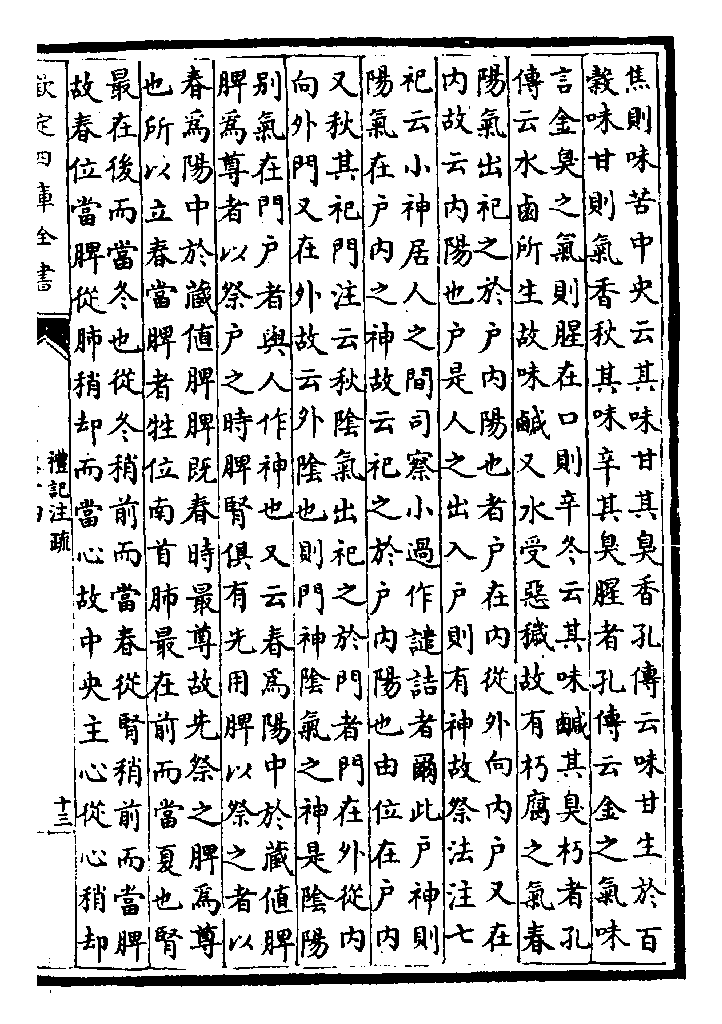 焦則味苦中央云其味甘其臭香孔傳云味甘生於百
榖味甘則氣香秋其味辛其臭腥者孔傳云金之氣味
言金臭之氣則腥在口則辛冬云其味鹹其臭朽者孔
傳云水鹵所生故味鹹又水受惡穢故有朽腐之氣春
陽氣出祀之於户内陽也者户在内從外向内户又在
内故云内陽也户是人之出入户則有神故祭法注七
祀云小神居人之間司察小過作譴詰者爾此户神則
陽氣在户内之神故云祀之於户内陽也由位在户内
又秋其祀門注云秋隂氣出祀之於門者門在外從内
向外門又在外故云外隂也則門神隂氣之神是隂陽
别氣在門户者與人作神也又云春為陽中於藏值脾
脾為尊者以祭户之時脾腎俱有先用脾以祭之者以
春為陽中於藏值脾脾既春時最尊故先祭之脾為尊
也所以立春當脾者牲位南首肺最在前而當夏也腎
最在後而當冬也從冬稍前而當春從腎稍前而當脾
故春位當脾從肺稍却而當心故中央主心從心稍却
欽定四庫全書
禮記注疏
十三